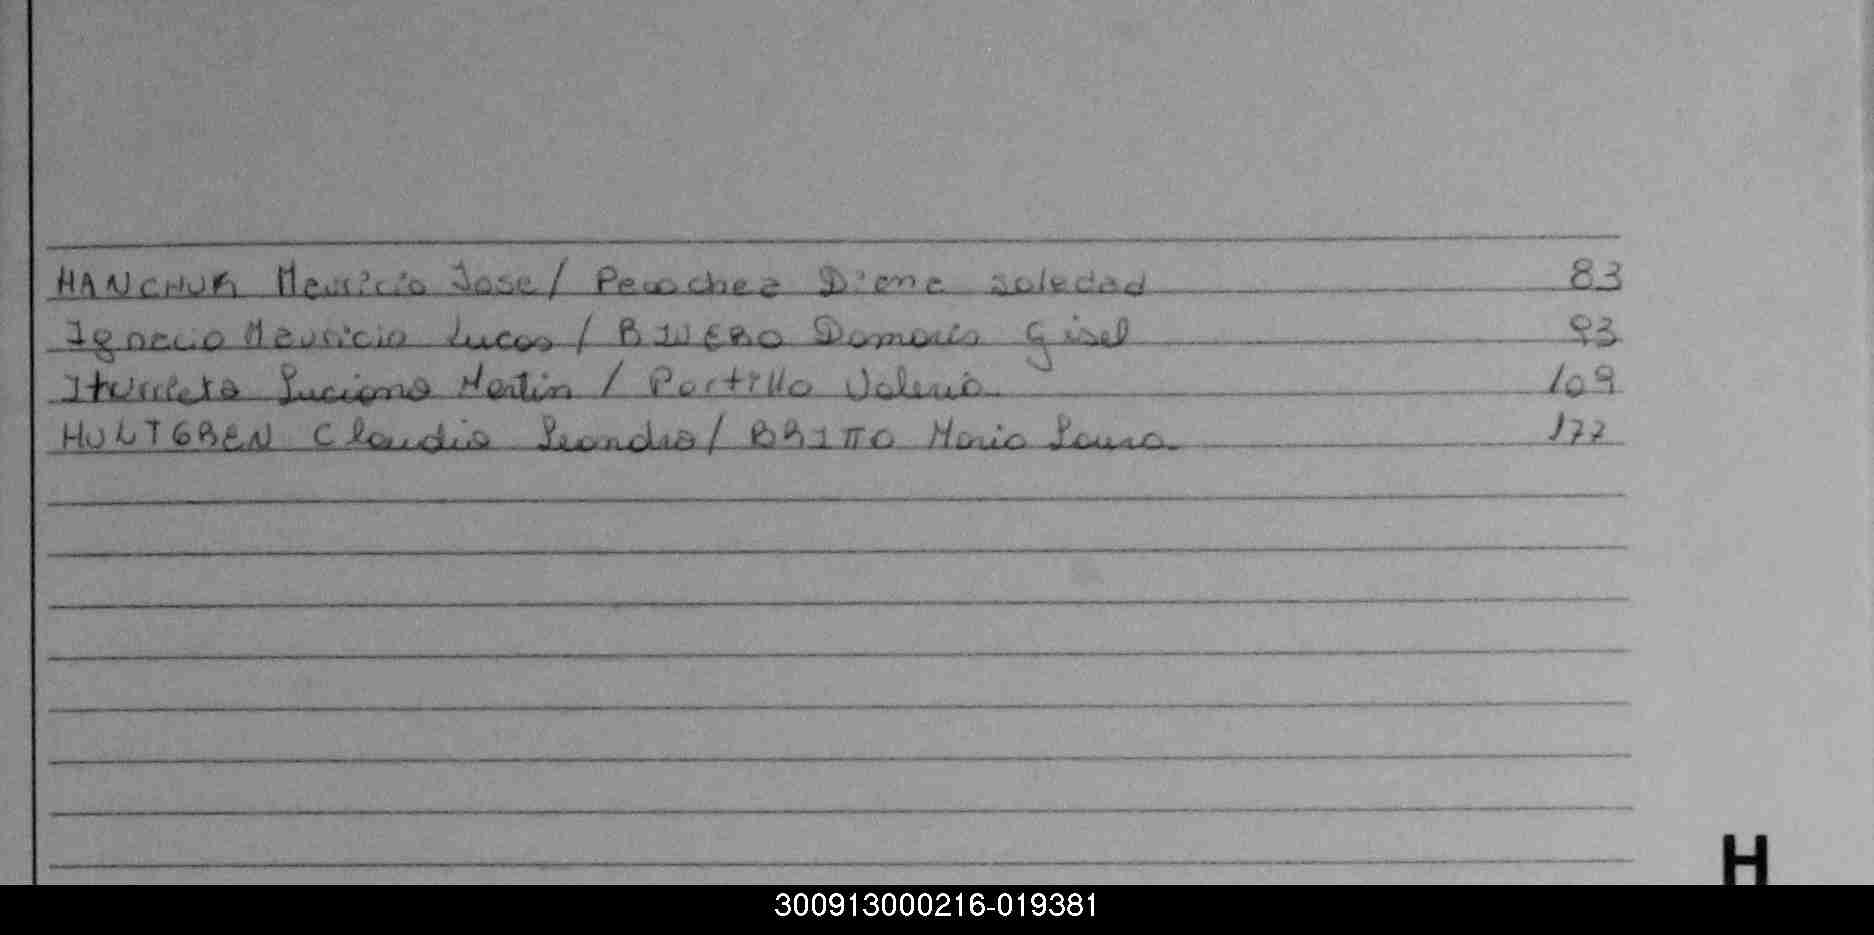 HANCHUK Mauricio Jose / Pedochez Diana soledad 83
Ignacio Mauricio Lucas / RIVERO Damaris Gisel 93
Iturrieta Luciano Martin / Portillo Valeria 109
HULTGREN Claudio Leandro / BRITTO Maria Laura 177
H
300913000216-019381